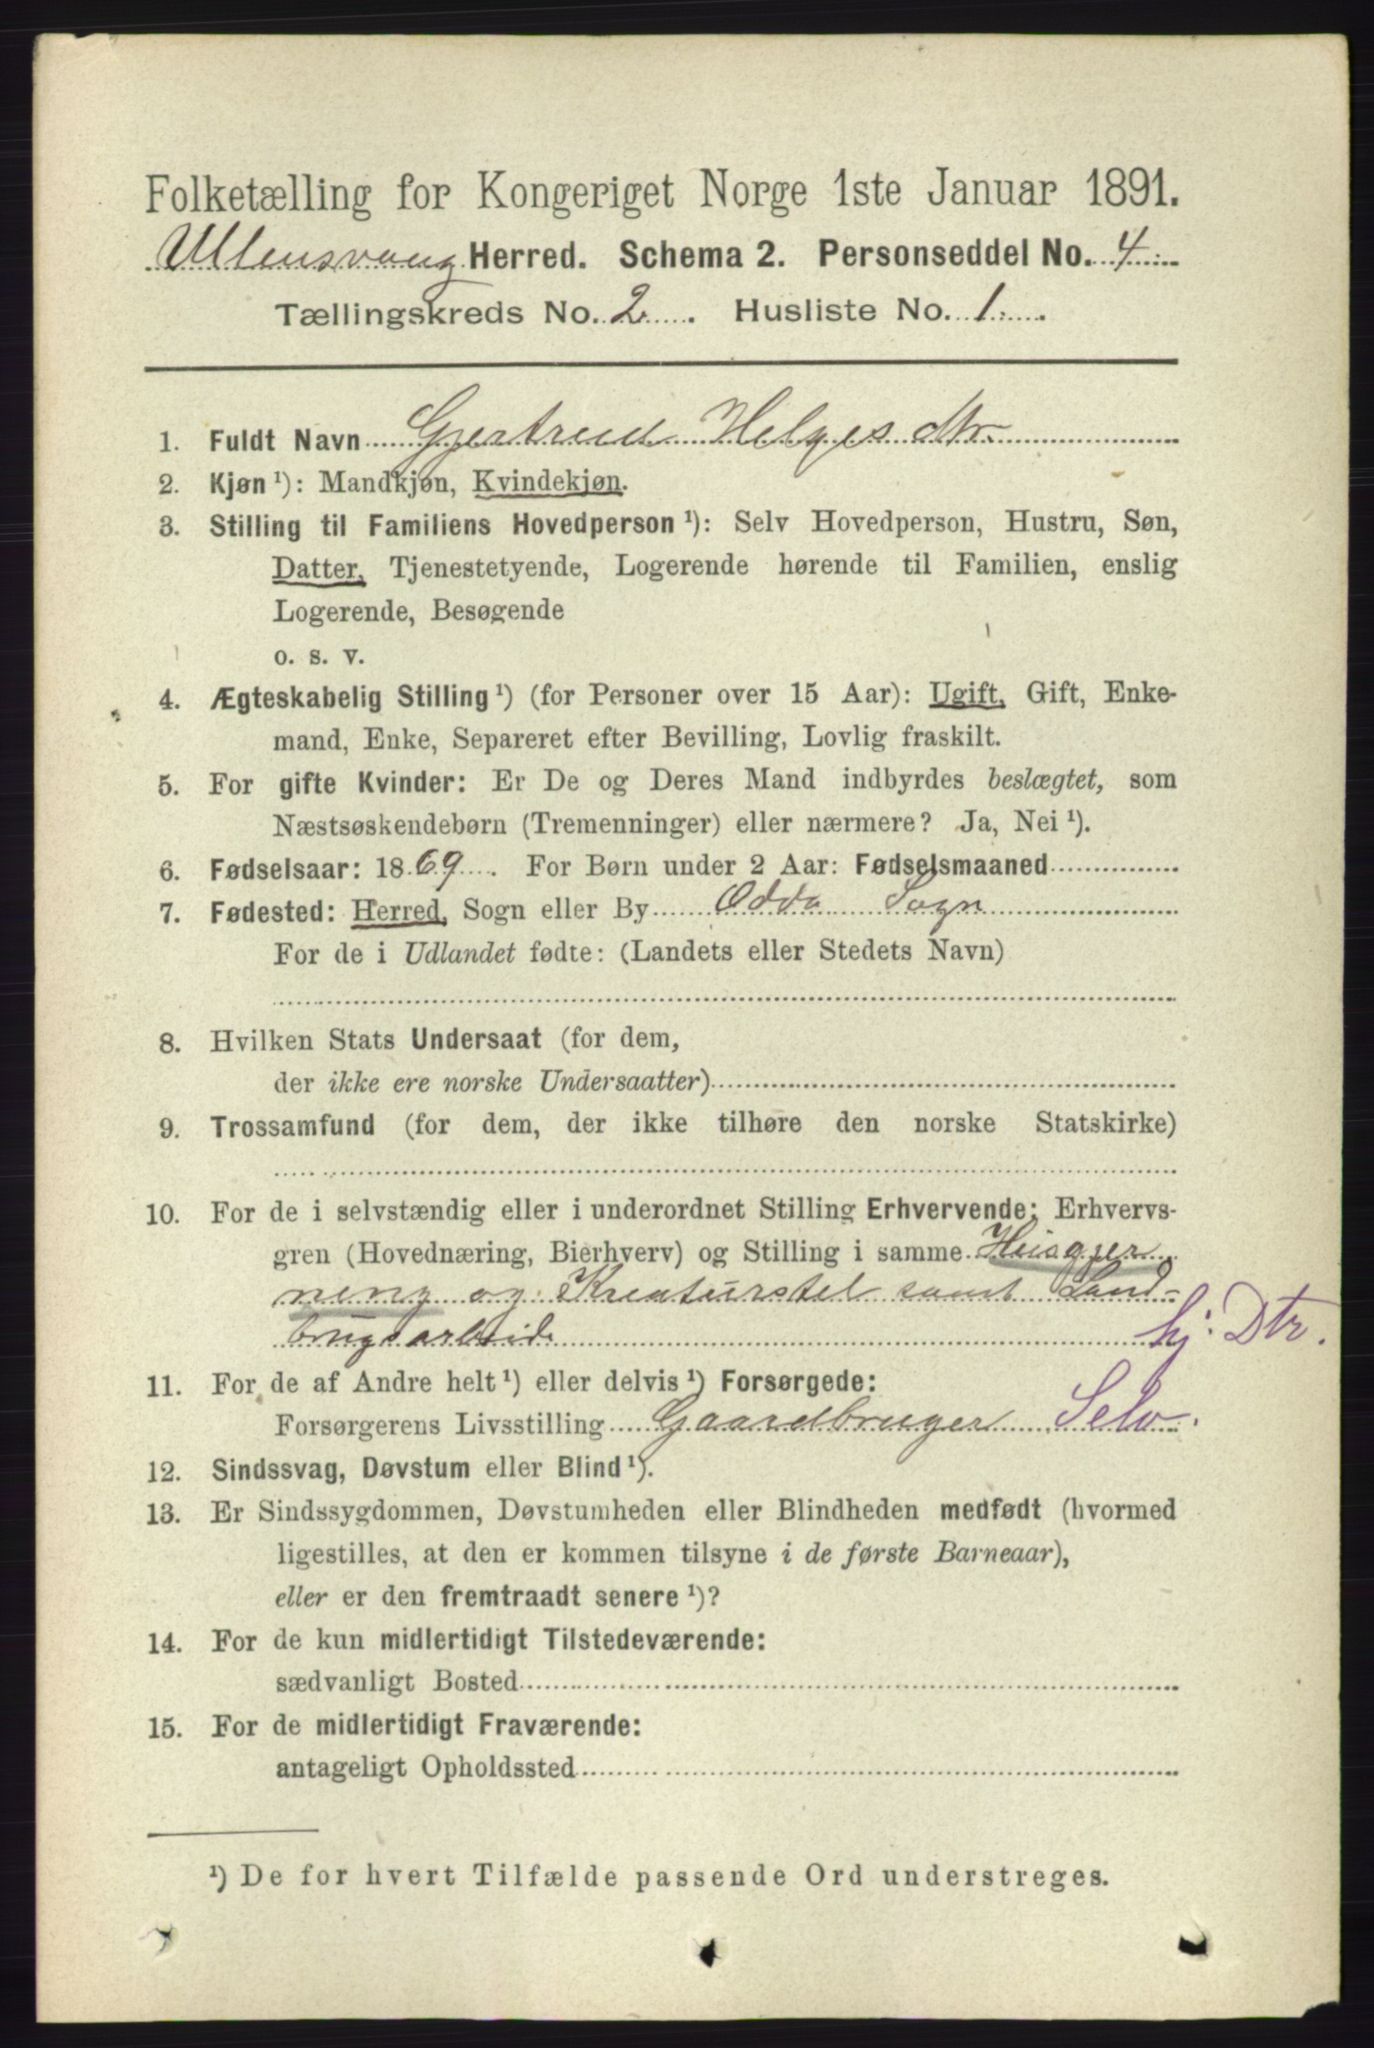 Folketælling for Kongeriget Norge 1ste Januar 1891.
Ullensvang Herred. Schema 2. Personseddel No. 4
Tællingskreds No. 2. Husliste No. 1.
1. Fuldt Navn Gjertrud Helgesdtr.
2. Kjøn ¹): Mandkjøn, Kvindekjøn.
3. Stilling til Familiens Hovedperson ¹): Selv Hovedperson, Hustru, Søn,
Datter, Tjenestetyende, Logerende hørende til Familien, enslig
Logerende, Besøgende
o. s. v.
4. Ægteskabelig Stilling ¹) (for Personer over 15 Aar): Ugift, Gift, Enke-
mand, Enke, Separeret efter Bevilling, Lovlig fraskilt.
5. For gifte Kvinder: Er De og Deres Mand indbyrdes beslægtet, som
Næstsøskendebørn (Tremenninger) eller nærmere? Ja, Nei ¹).
6. Fødselsaar: 1869. For Børn under 2 Aar: Fødselsmaaned
7. Fødested: Herred, Sogn eller By Odda Sogn
For de i Udlandet fødte: (Landets eller Stedets Navn)
8. Hvilken Stats Undersaat (for dem,
der ikke ere norske Undersaatter)
9. Trossamfund (for dem, der ikke tilhøre den norske Statskirke)
10. For de i selvstændig eller i underordnet Stilling Erhvervende: Erhvervs-
gren (Hovednæring, Bierhverv) og Stilling i samme Huisgjer
ning og Kreaturstel samt Land-
brugsarbeide hj. Dtr.
11. For de af Andre helt ¹) eller delvis ¹) Forsørgede:
Forsørgerens Livsstilling Gaardbruger Selv.
12. Sindssvag, Døvstum eller Blind ¹).
13. Er Sindssygdommen, Døvstumheden eller Blindheden medfødt (hvormed
ligestilles, at den er kommen tilsyne i de første Barneaar),
eller er den fremtraadt senere ¹)?
14. For de kun midlertidigt Tilstedeværende:
sædvanligt Bosted
15. For de midlertidigt Fraværende:
antageligt Opholdssted
¹) De for hvert Tilfælde passende Ord understreges.